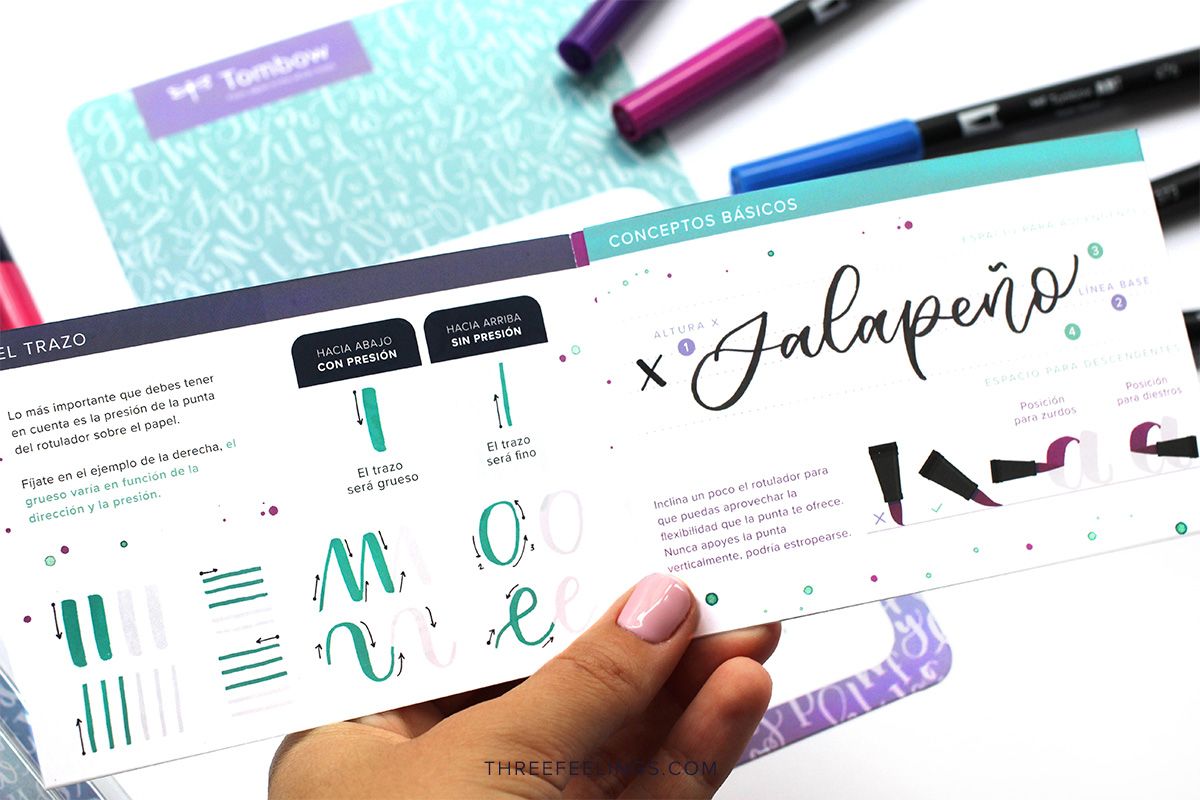 Tombow
Tombow
EL TRAZO
Lo más importante que debes tener
en cuenta es la presión de la punta
del rotulador sobre el papel.
Fíjate en el ejemplo de la derecha, el
grueso varía en función de la
dirección y la presión.
HACIA ABAJO
CON PRESIÓN
HACIA ARRIBA
SIN PRESIÓN
El trazo
será grueso
El trazo
será fino
2
3
CONCEPTOS BÁSICOS
ESPACIO PARA ASCENDENTES
3
ALTURA X
1
LÍNEA BASE
2
x Jalapeño
4
ESPACIO PARA DESCENDENTES
Posición
para zurdos
Posición
para diestros
a
a
Inclina un poco el rotulador para
que puedas aprovechar la
flexibilidad que la punta te ofrece.
Nunca apoyes la punta
verticalmente, podría estropearse.
THREEFEELINGS.COM